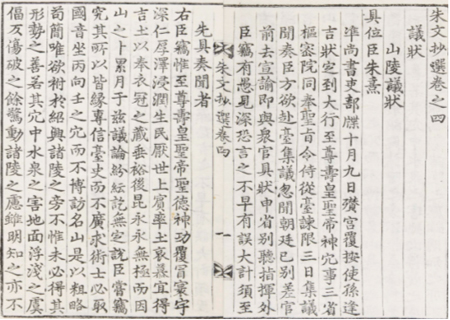 朱文抄選卷之四
議狀
山陵議狀
具位臣朱熹
準尚書吏部牒十月九日殯宮覆按使孫逢
吉狀定到大行至尊壽皇聖帝神穴事三省
樞密院同奉聖旨令侍從臺諫限三日集議
聞奏臣方欲赴臺集議忽聞朝廷已別差官
前去宣諭即與衆官具狀申省別聽指揮外
臣竊有愚見深恐言之不早有誤大計須至
朱文抄選卷四
一
先具奏聞者
右臣竊惟至尊壽皇聖帝聖德神功覆冒寰宇
深仁厚澤浸潤生民厭世上賓率土哀慕宜得
吉土以奉衣冠之藏垂裕後昆永永無極而因
山之卜累月于茲議論紛紜訖無定說臣嘗竊
究其所以皆緣專信臺史而不廣求術士必取
國音坐丙向壬之穴而不博訪名山是以粗略
苟簡唯欲祔於紹興諸陵之旁不惟未必得其
形勢之善若其穴中水泉之害地面浮淺之虞
偪仄傷破之餘驚動諸陵之慮雖明知之亦不